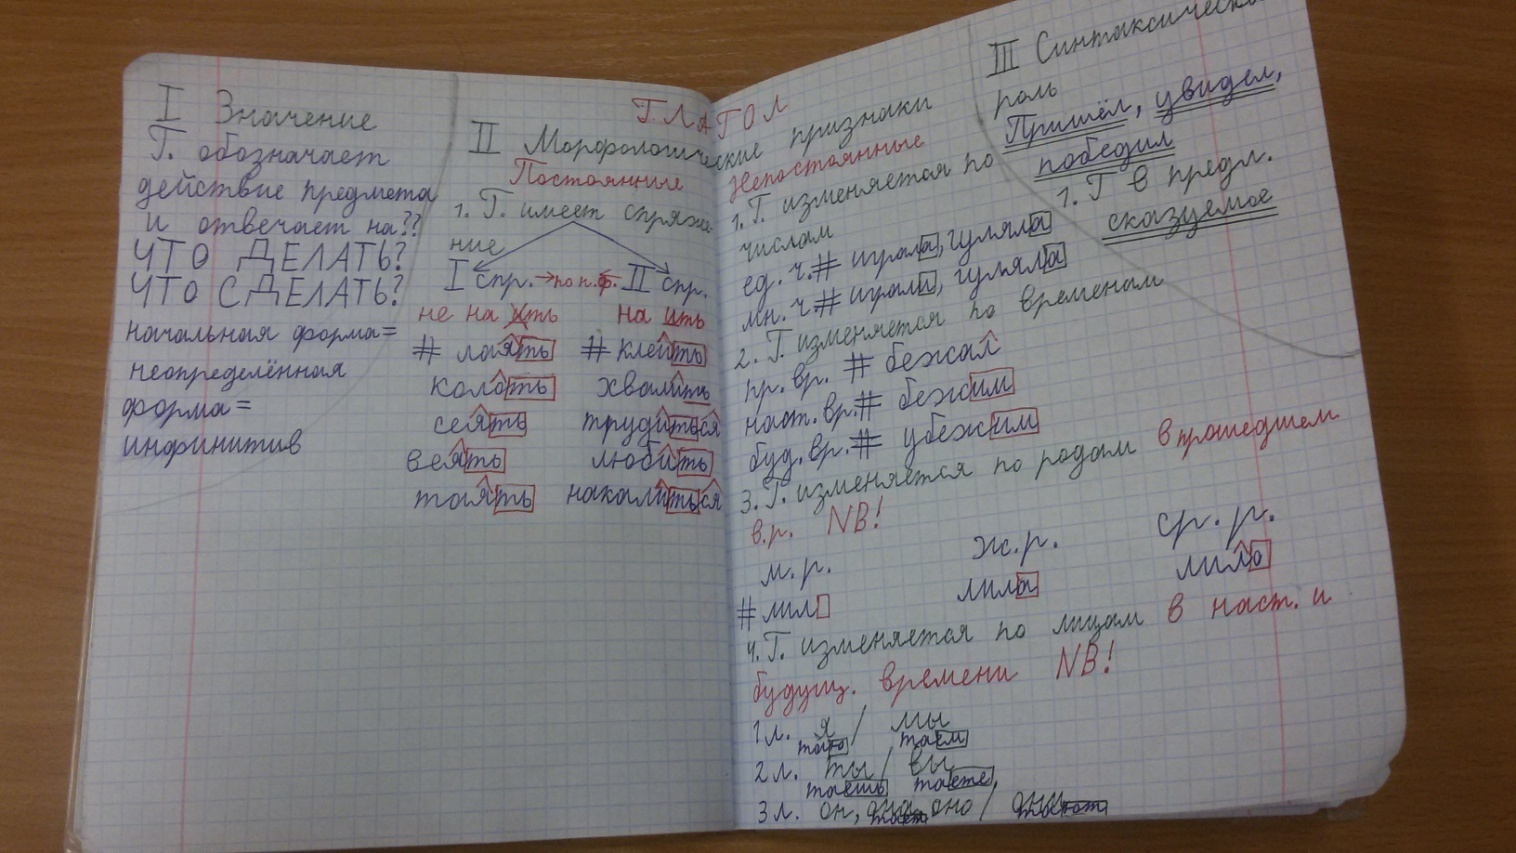 ГЛАГОЛ
I Значение
Г. обозначает
действие предмета
и отвечает на??
ЧТО ДЕЛАТЬ?
ЧТО СДЕЛАТЬ?
начальная форма=
неопределённая
форма=
инфинитив
II Морфологические признаки
Постоянные
1. Г. имеет спряже-
ние
I спр. → по н.ф. ← II спр.
не на ить на ить
# лаять # клеить
колоть хвалить
сеять трудиться
веять любить
таять накалиться
Непостоянные
1. Г. изменяется по
числам
ед. ч. # играла, гуляла
мн. ч. # играли, гуляла
2. Г. изменяется по временам
пр. вр. # бежал
наст. вр. # бежим
буд. вр. # убежим
3. Г. изменяется по родам в прошедшем
в.р. NB!
м.р. ж.р. ср.р.
# лил лила лило
4. Г. изменяется по лицам в наст. и
будущ. времени NB!
1 л. я / мы
таю таем
2 л. ты / вы
таешь таете
3 л. он, она, оно / они
тает тают
III Синтаксическая
роль
Пришёл, увидел,
победил
1. Г в предл.
сказуемое